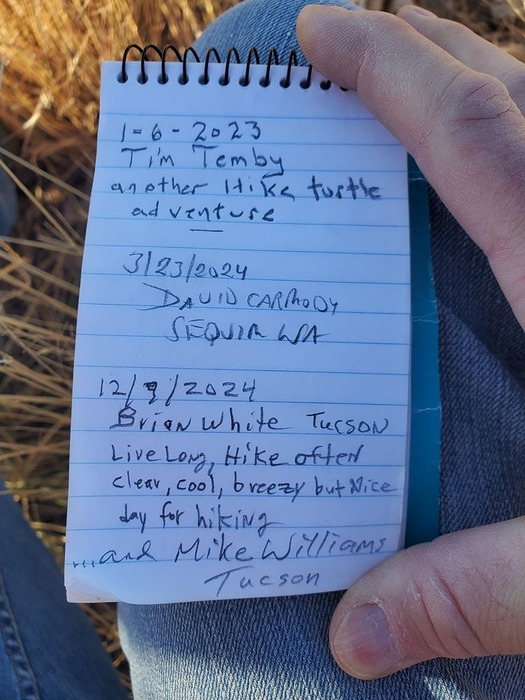 1-6-2023
Tim Temby
another Hike turtle
adventure
3/23/2024
DAVID CARMODY
SEQUIM WA
12/9/2024
Brian White TUCSON
Live Long, Hike often
Clear, cool, breezy but Nice
day for hiking
...and Mike Williams
Tucson